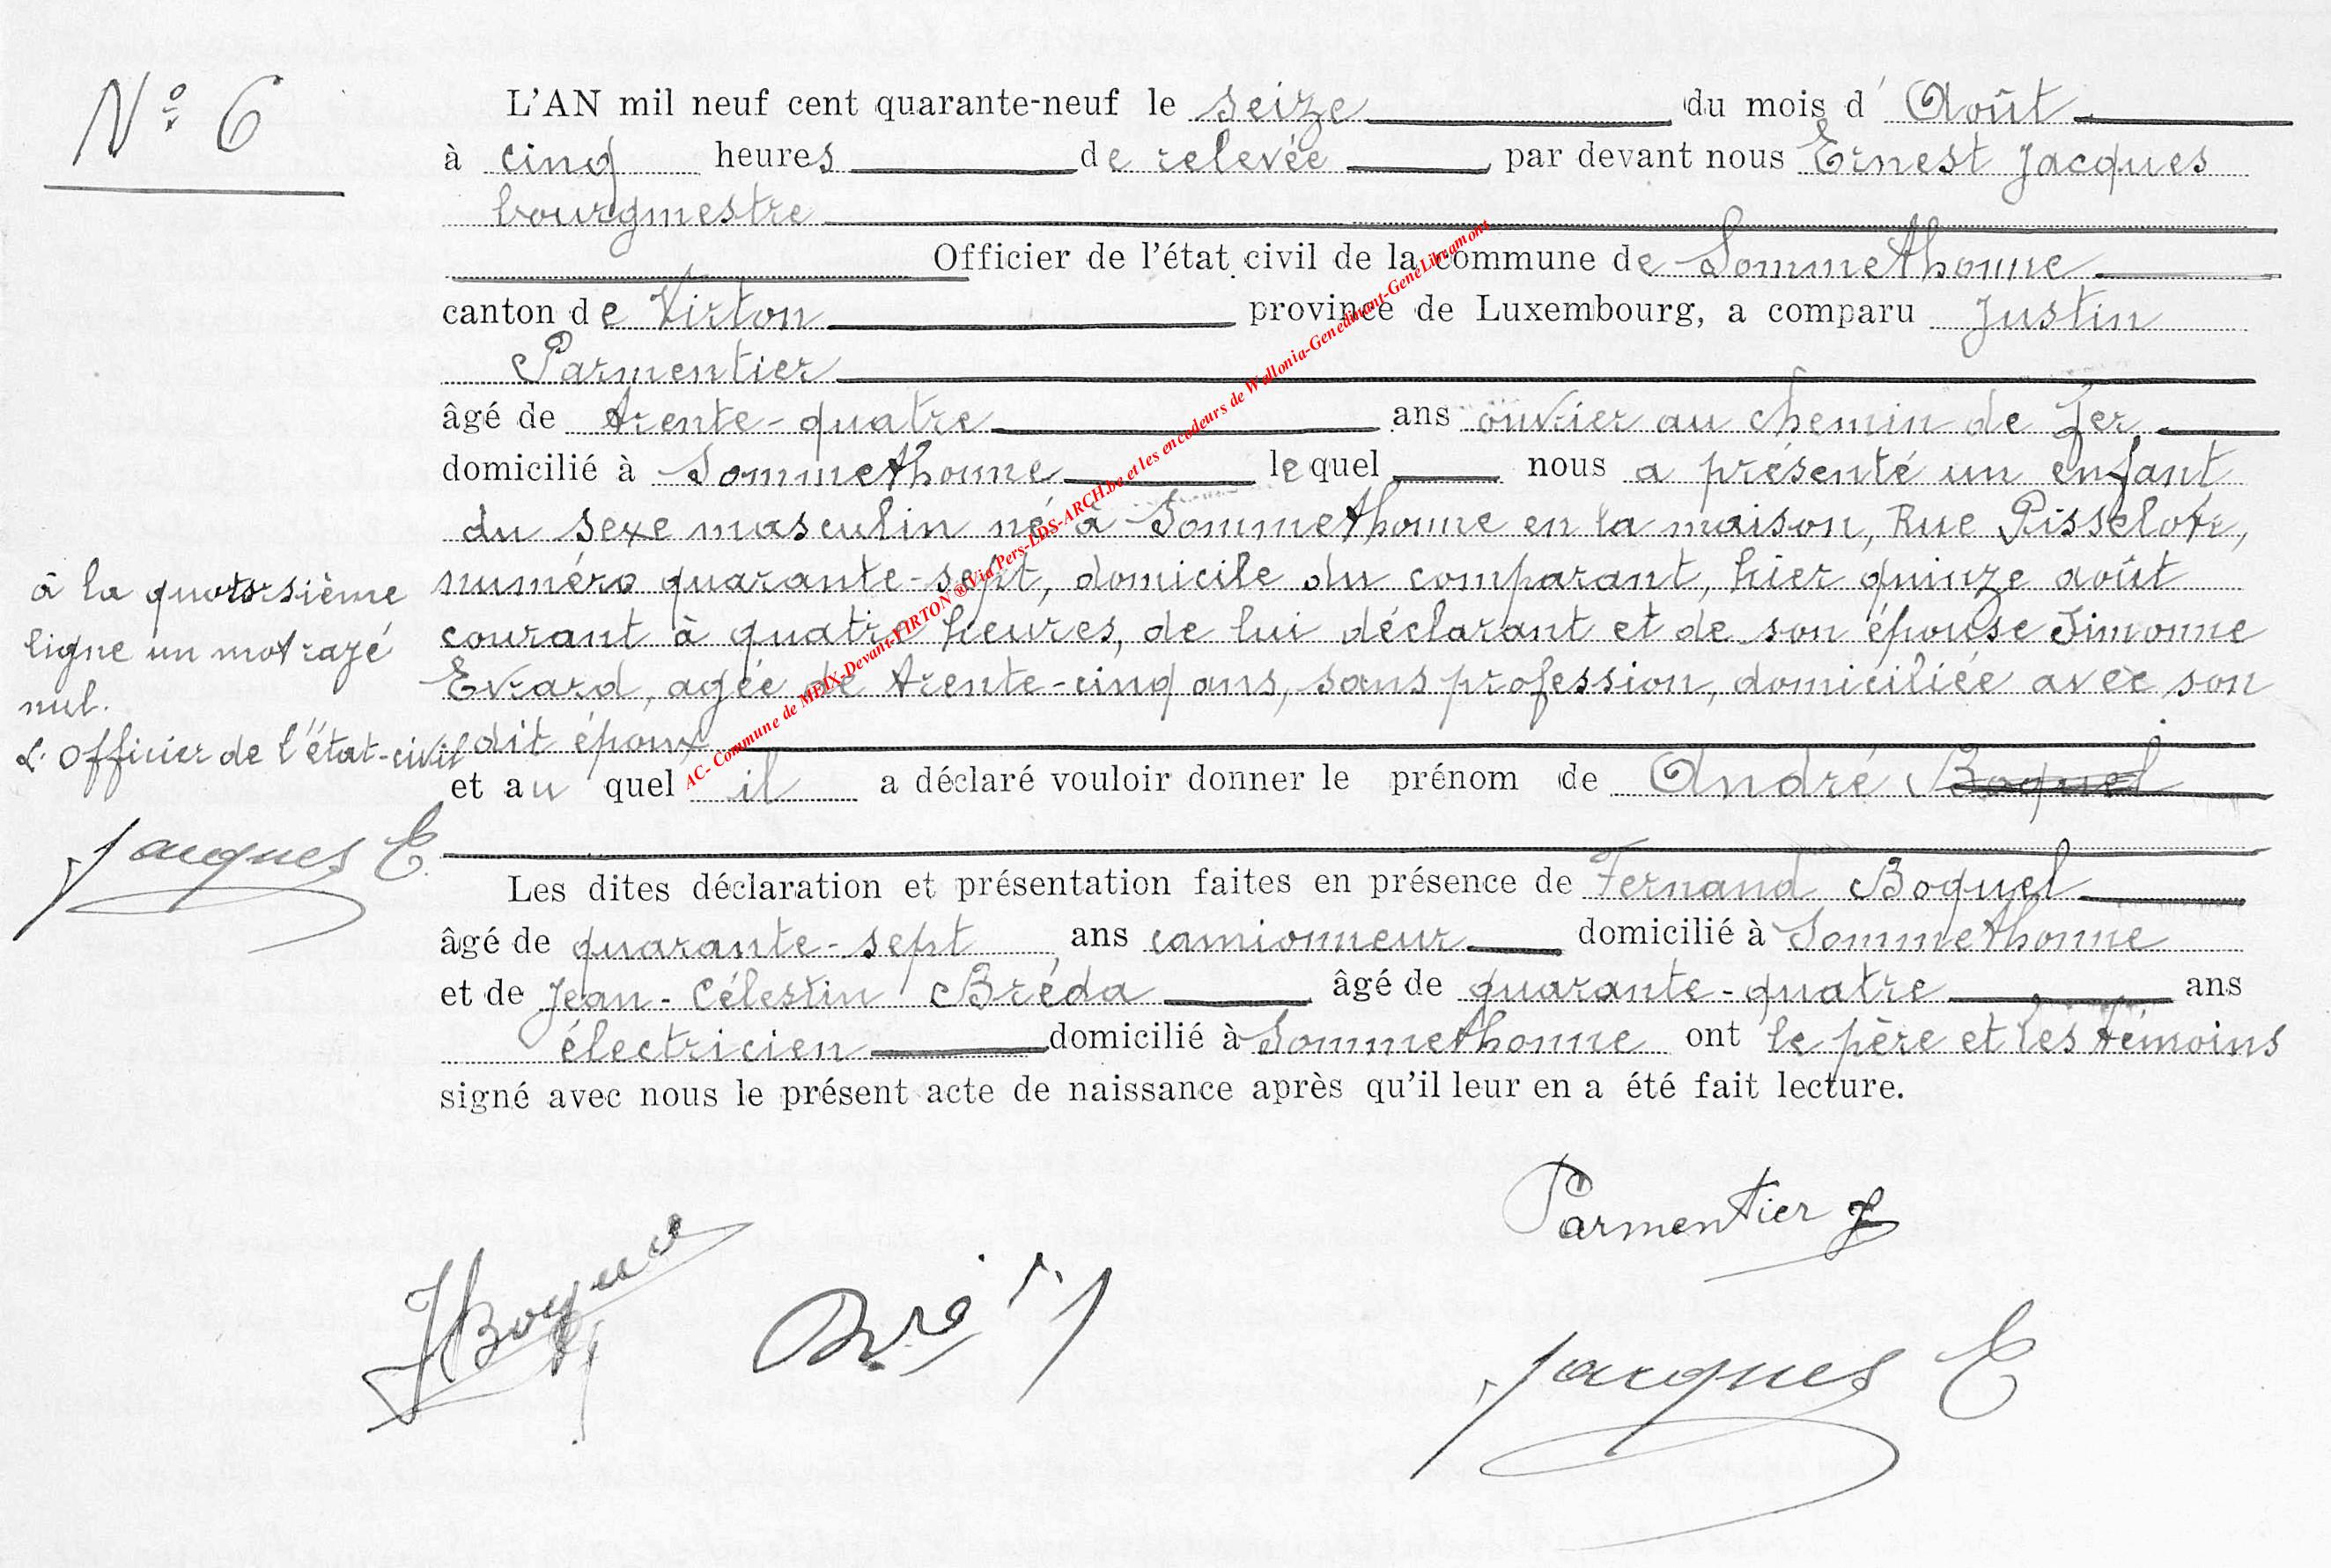 N° 6
L'AN mil neuf cent quarante-neuf le seize du mois d' Août
à cinq heures de relevée par devant nous Ernest Jacques
bourgmestre
Officier de l'état civil de la commune de Sommethonne
canton de Virton province de Luxembourg, a comparu Justin
Parmentier
âgé de trente-quatre ans ouvrier au chemin de fer
domicilié à Sommethonne lequel nous a présenté un enfant
du sexe masculin né à Sommethonne en la maison, Rue
numéro quarante-sept, domicile du comparant, hier quinze août
courant à quatre heures, de lui déclarant et de son épouse Simonne
Evrard, agée de trente-cinq ans, sans profession, domiciliée avec son
dit époux
et au quel il a déclaré vouloir donner le prénom de André Boquel
Les dites déclaration et présentation faites en présence de Fernand Boquel
âgé de quarante-sept ans camionneur domicilié à Sommethonne
et de Jean-Célestin Bréda âgé de quarante-quatre ans
électricien domicilié à Sommethonne ont le père et les témoins
signé avec nous le présent acte de naissance après qu'il leur en a été fait lecture.
à la
ligne un mot rayé
nul.
L'Officier de l'état-civil
Jacques E.
Parmentier J
Jacques E
AC- Commune de MEIX-Devant-VIRTON ® Via Pers-LDS-ARCH.be et les encodeurs de Wallonia-Genedinant-GeneLibramont